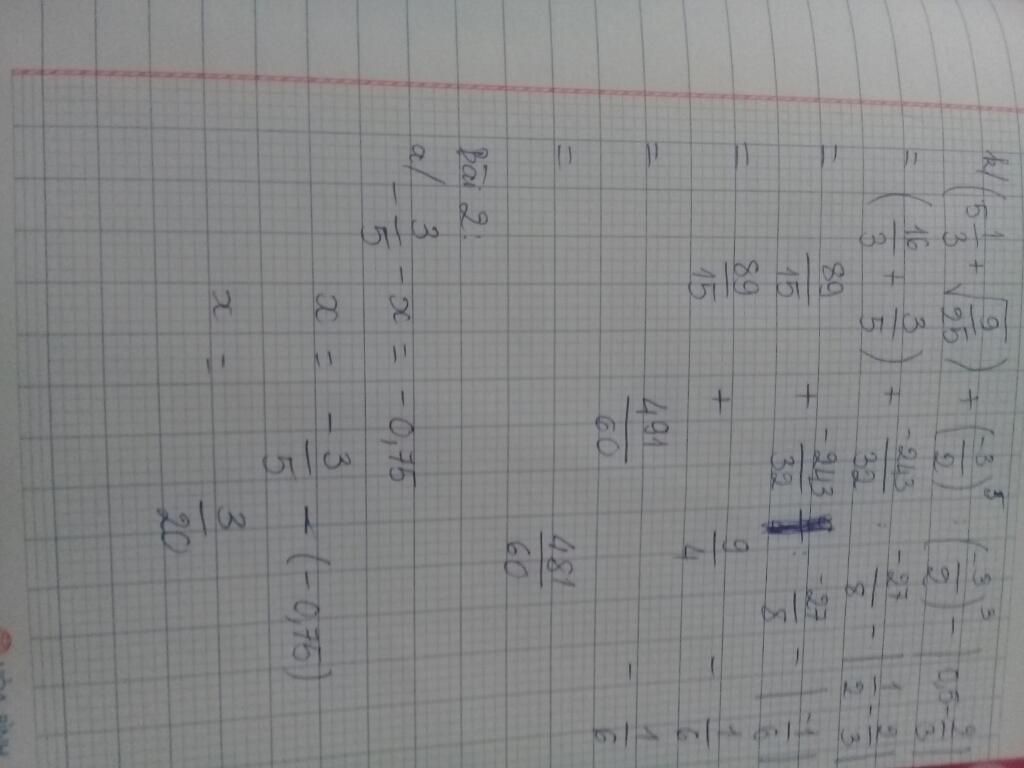 b/ (5 1/3 + √(9/25)) + (-3/2)^5 : (-3/2)^3 - |0,5 - 2/3|
= (16/3 + 3/5) + -243/32 : -27/8 - |1/2 - 2/3|
= 89/15 + -243/32 : -27/8 - |-1/6|
= 89/15 + 9/4 - 1/6
= 491/60 - 1/6
= 481/60
Bài 2:
a/ -3/5 - x = -0,75
x = -3/5 - (-0,75)
x = 3/20